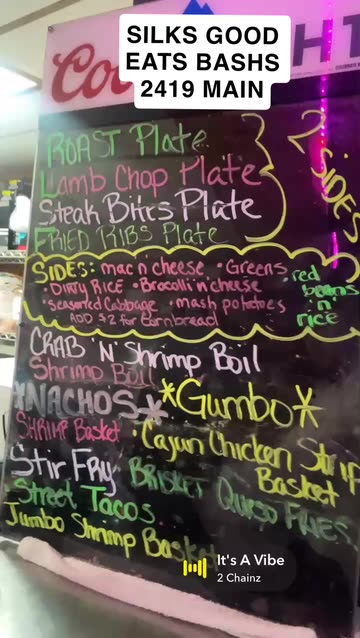 SILKS GOOD
EATS BASHS
2419 MAIN
Coo
HT
ROAST Plate
Lamb Chop Plate
Steak Bites Plate
FRIED RIBS Plate
2 SIDES
SIDES: mac n' cheese • Greens
• DIRTY RICE • Brocolli 'n' cheese
• Seasoned Cabbage • mash potatoes
ADD $2 for Cornbread
• red
beans
'n'
rice
CRAB 'N' Shrimp Boil
Shrimp Boil
*NACHOS* *Gumbo*
SHRIMP Basket • Cajun Chicken Strip
Basket
Stir Fry BRISKET QUESO FRIES
Street Tacos
Jumbo Shrimp Basket
It's A Vibe
2 Chainz